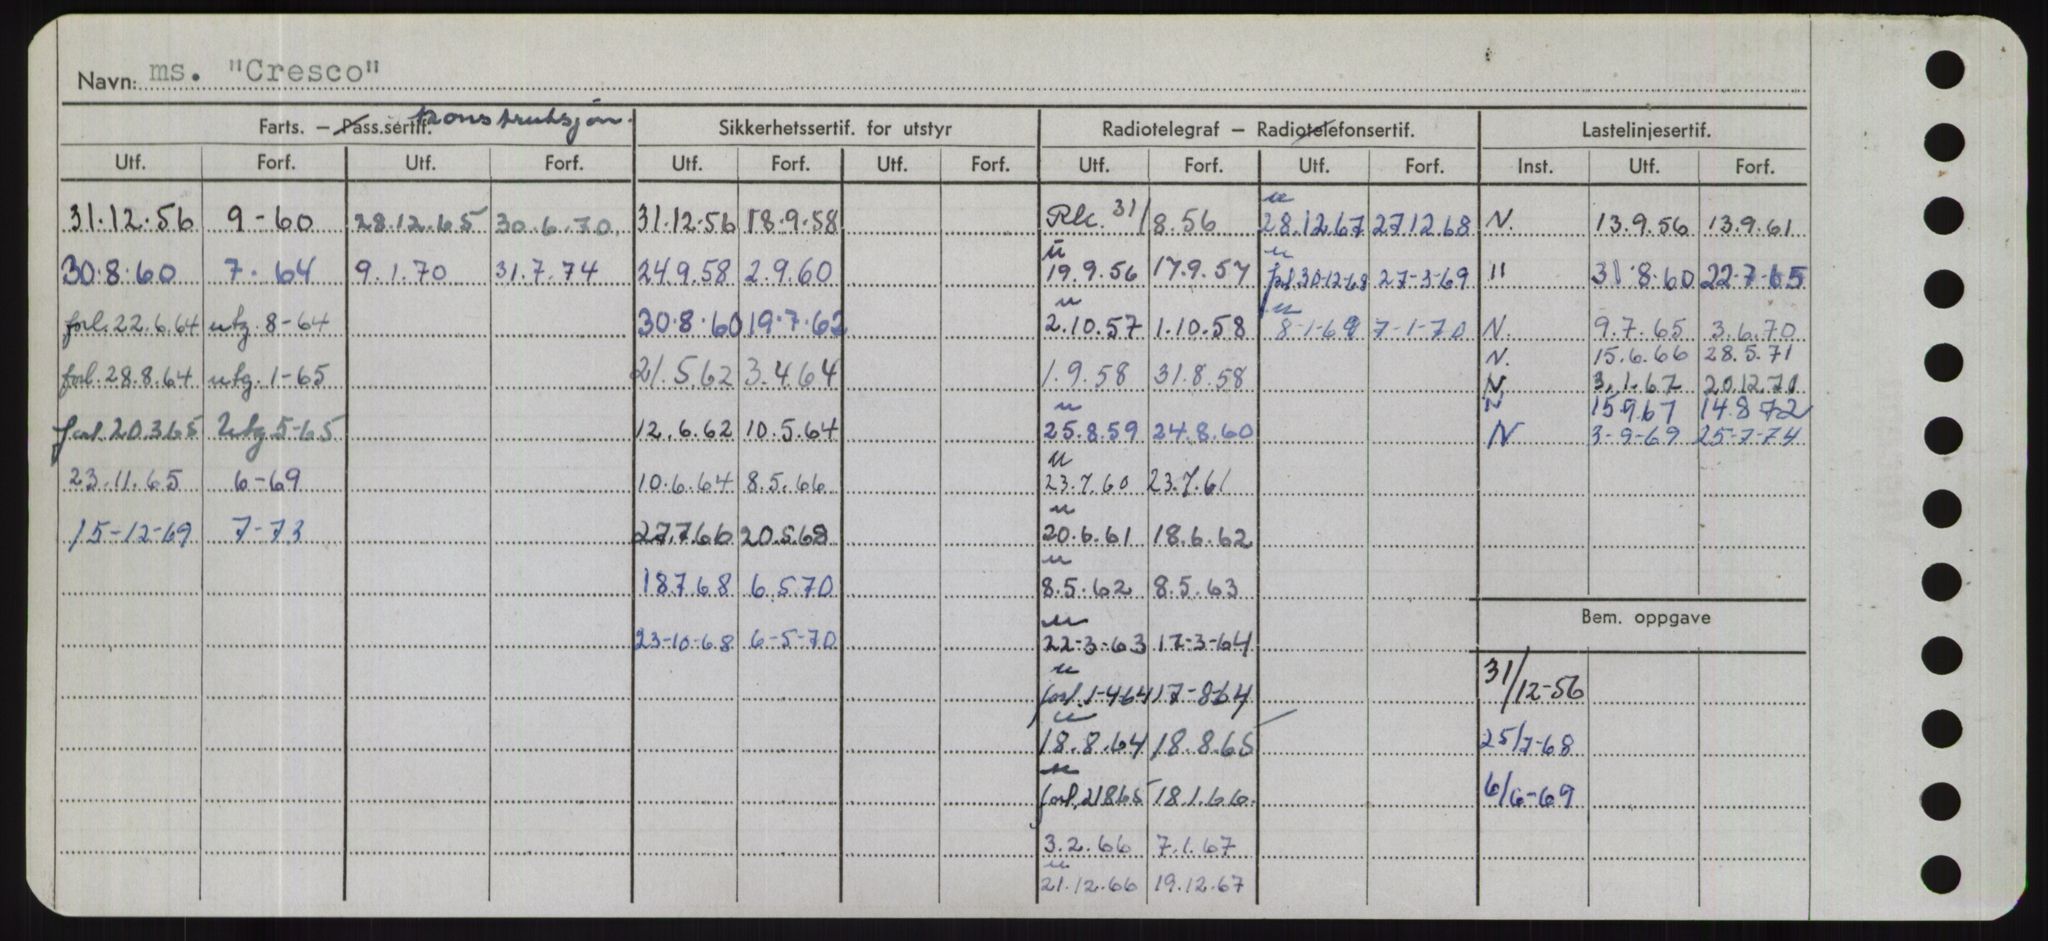 Navn: ms. "Cresco"
Farts. – Pass.sertif. konstruksjon. Sikkerhetssertif. for utstyr Radiotelegraf – Radiotelefonsertif. Lastelinjesertif.
Utf. Forf. Utf. Forf. Utf. Forf. Utf. Forf. Utf. Forf. Utf. Forf. Inst. Utf. Forf.
u
31.12.56 9-60 28.12.65 30.6.70. 31.12.56 18.9.58 31/8.56 28.12.67 27.12.68 N. 13.9.56 13.9.61
u u
30.8.60 7.64 9.1.70 31.7.74 24.9.58 2.9.60 19.9.56 17.9.57 forl.30-12-68 27-3-69 " 31.8.60 22.7.65
u u
forl.22.6.64 utg.8-64 30.8.60 19.7.62 2.10.57 1.10.58 8-1-69 7-1-70 N. 9.7.65 3.6.70
N. 15.6.66 28.5.71
forl.28.8.64 utg.1-65 21.5.62 3.4.64 1.9.58 31.8.58 N 3.1.67 20.12.70
u N 15.9.67 14.8.72
forl.20.3.65 Utg 5-65 12.6.62 10.5.64 25.8.59 24.8.60 N 3-9-69 25-7-74
u
23.11.65 6-69 10.6.64 8.5.66 23.7.60 23.7.61
u
15-12-69 7-73 27.7.66 20.5.68 20.6.61 18.6.62
u
18.7.68 6.5.70 8.5.62 8.5.63
Bem. oppgave
u
23-10-68 6-5-70 22-3-63 17-3-64
u
forl.1-4-64 17-8-64 31/12-56
u
18.8.64 18.8.65 25/7-68
u
forl.21865 18.1.66. 6/6-69
3.2.66 7.1.67
u
21.12.66 19.12.67